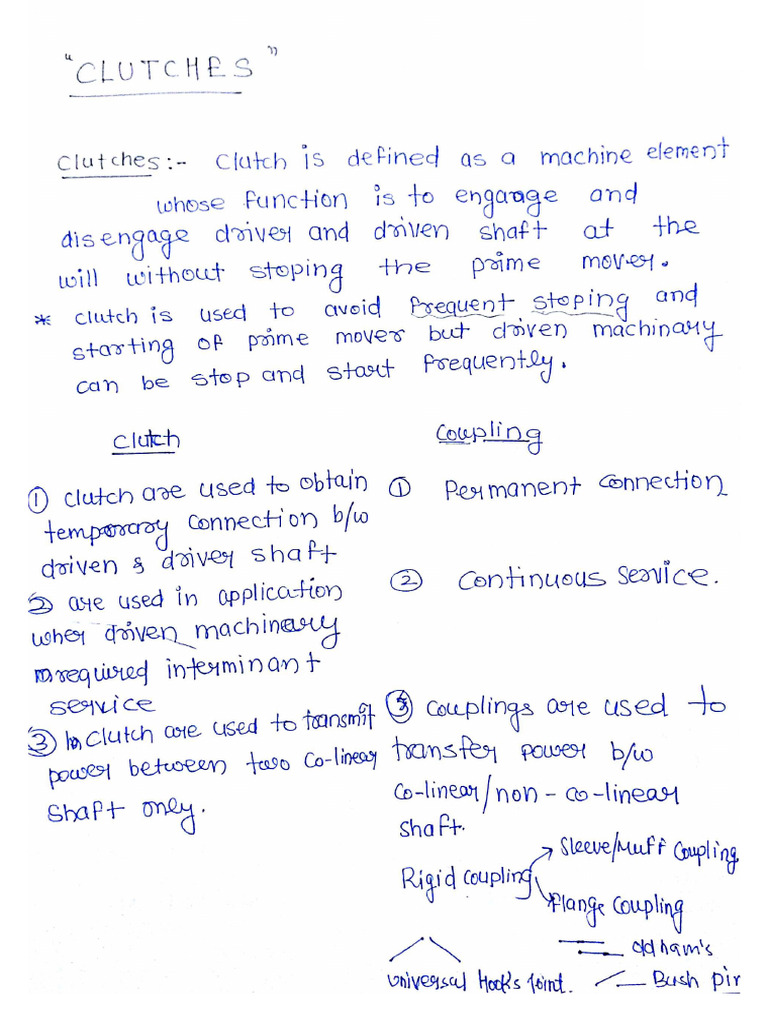 "CLUTCHES"
Clutches:- Clutch is defined as a machine element
whose function is to engange and
disengage driver and driven shaft at the
will without stoping the prime mover.
* clutch is used to avoid frequent stoping and
starting of prime mover but driven machinary
can be stop and start frequently.
Clutch
① Clutch are used to obtain
temporary connection b/w
driven & driver shaft
② are used in application
wher driven machinery
required interminant
service
③ Clutch are used to transmit
power between two co-linear
shaft only.
Coupling
① Permanent connection
② Continuous service.
③ Couplings are used to
transfer power b/w
co-linear/non-co-linear
shaft.
Rigid coupling
Sleeve/Muff coupling
Flange coupling
oldham's
universal Hook's Joint.
Bush pin